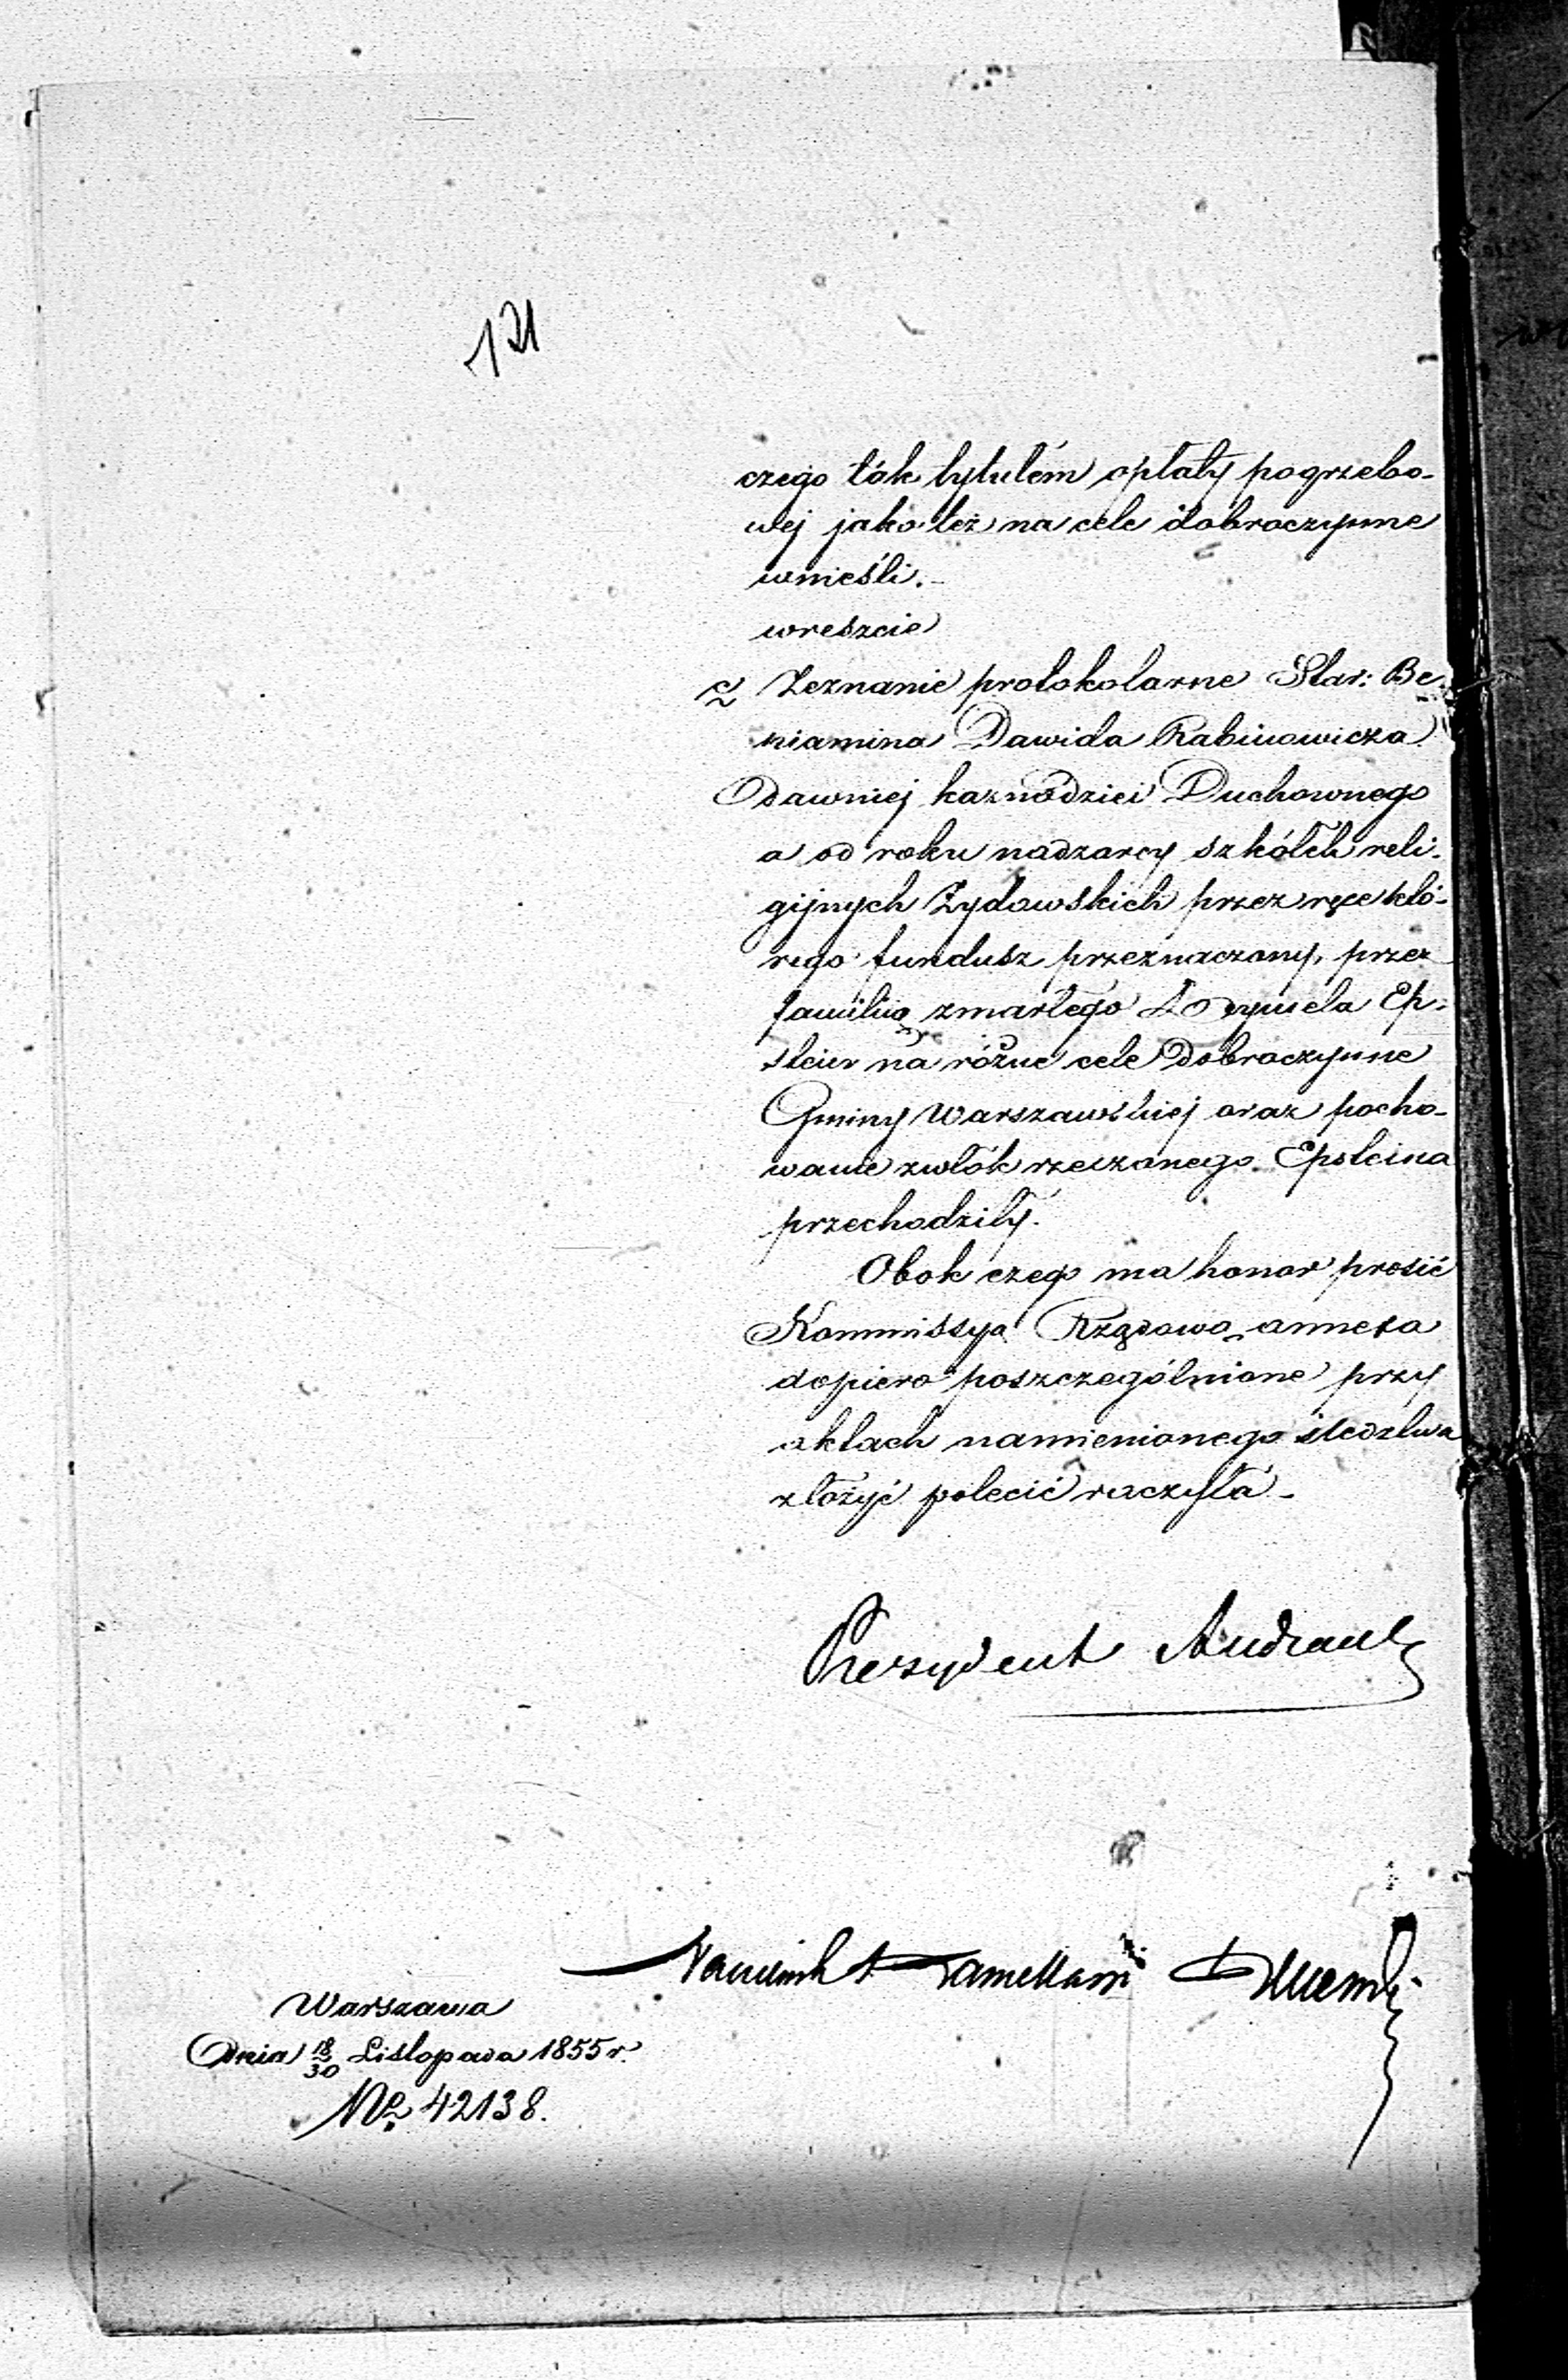 121
czego tak tytułem opłaty pogrzebo-
wej jako też na cele dobroczynne
wnieśli.-
wreszcie
c/ Zeznanie protokolarne Star: Be-
niamina Dawida Rabinowicza
dawniej kaznodziei Duchownego
a od roku nadzorcy szkółek reli-
gijnych Żydowskich przez ręce któ-
rego fundusz przeznaczony, przez
familią zmarłego Ep-
stein na różne cele dobroczynne
Gminy Warszawskiej oraz pocho-
wanie zwłók rzeczonego Epsteina
przechodziły.
Obok czego ma honor prosić
Kommissya Rządowa annexa
dopiero poszczególnione przy
aktach namienionego śledztwa
złożyć polecić raczyła -
Prezydent Andrault
Naczelnik
Warszawa
Dnia 18/30 Listopada 1855 r.
No 42138.